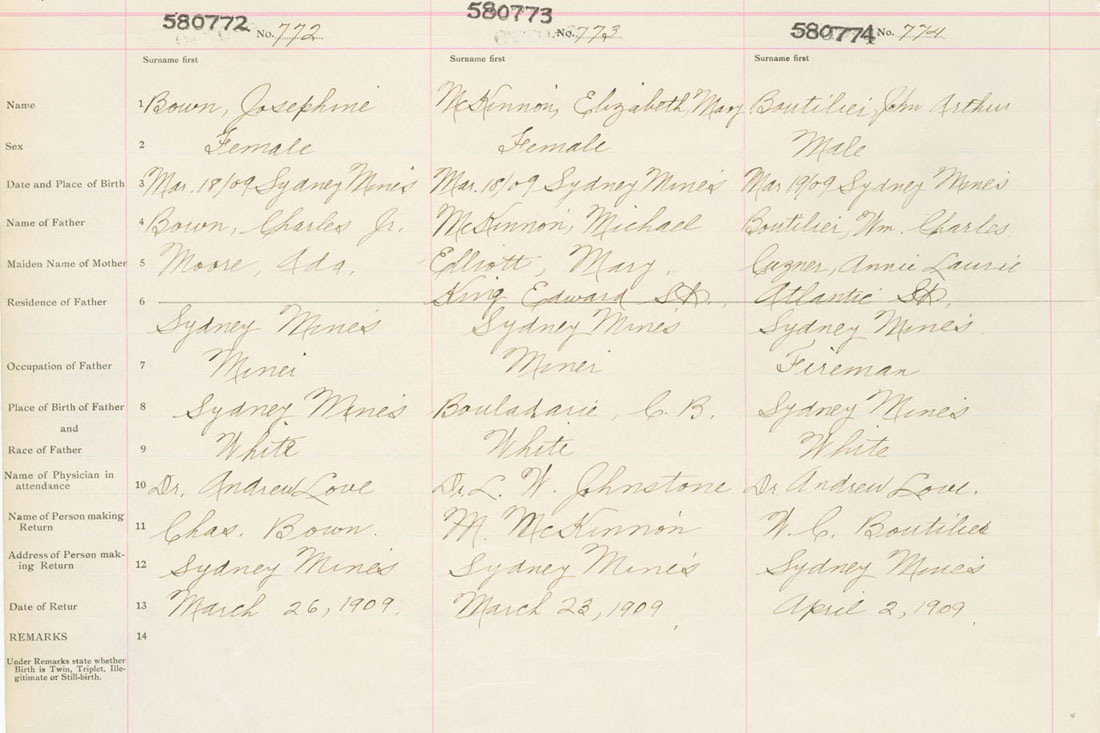 580772 No. 772
580773 No. 773
580774 No. 774
Surname first Surname first Surname first
Name 1 Bown, Josephine McKinnon, Elizabeth Mary Boutilier, John Arthur
Sex 2 Female Female Male
Date and Place of Birth 3 Mar. 18/09 Sydney Mines Mar. 18/09 Sydney Mines Mar 19/09 Sydney Mines
Name of Father 4 Bown, Charles Jr. McKinnon, Michael Boutilier, Wm. Charles
Maiden Name of Mother 5 Moore, Ada. Elliott, Mary. Annie Laurie
Residence of Father 6 King Edward St. Atlantic St.
Sydney Mines Sydney Mines Sydney Mines.
Occupation of Father 7 Miner Miner Fireman
Place of Birth of Father 8 Sydney Mines Bouladarie, C. B. Sydney Mines
and
Race of Father 9 White White White
Name of Physician in
attendance 10 Dr. Andrew Love Dr. L. W. Johnstone Dr. Andrew Love.
Name of Person making
Return 11 Chas. Bown. M. McKinnon W. C. Boutilier
Address of Person mak-
ing Return 12 Sydney Mines Sydney Mines Sydney Mines
Date of Retur 13 March 26, 1909. March 23, 1909 April 2, 1909.
REMARKS 14
Under Remarks state whether
Birth is Twin, Triplet, Ille-
gitimate or Still-birth.